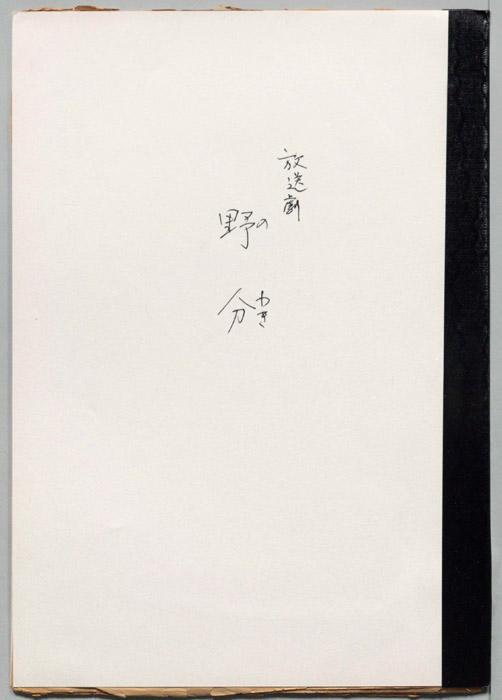 放送劇
野の
分わき